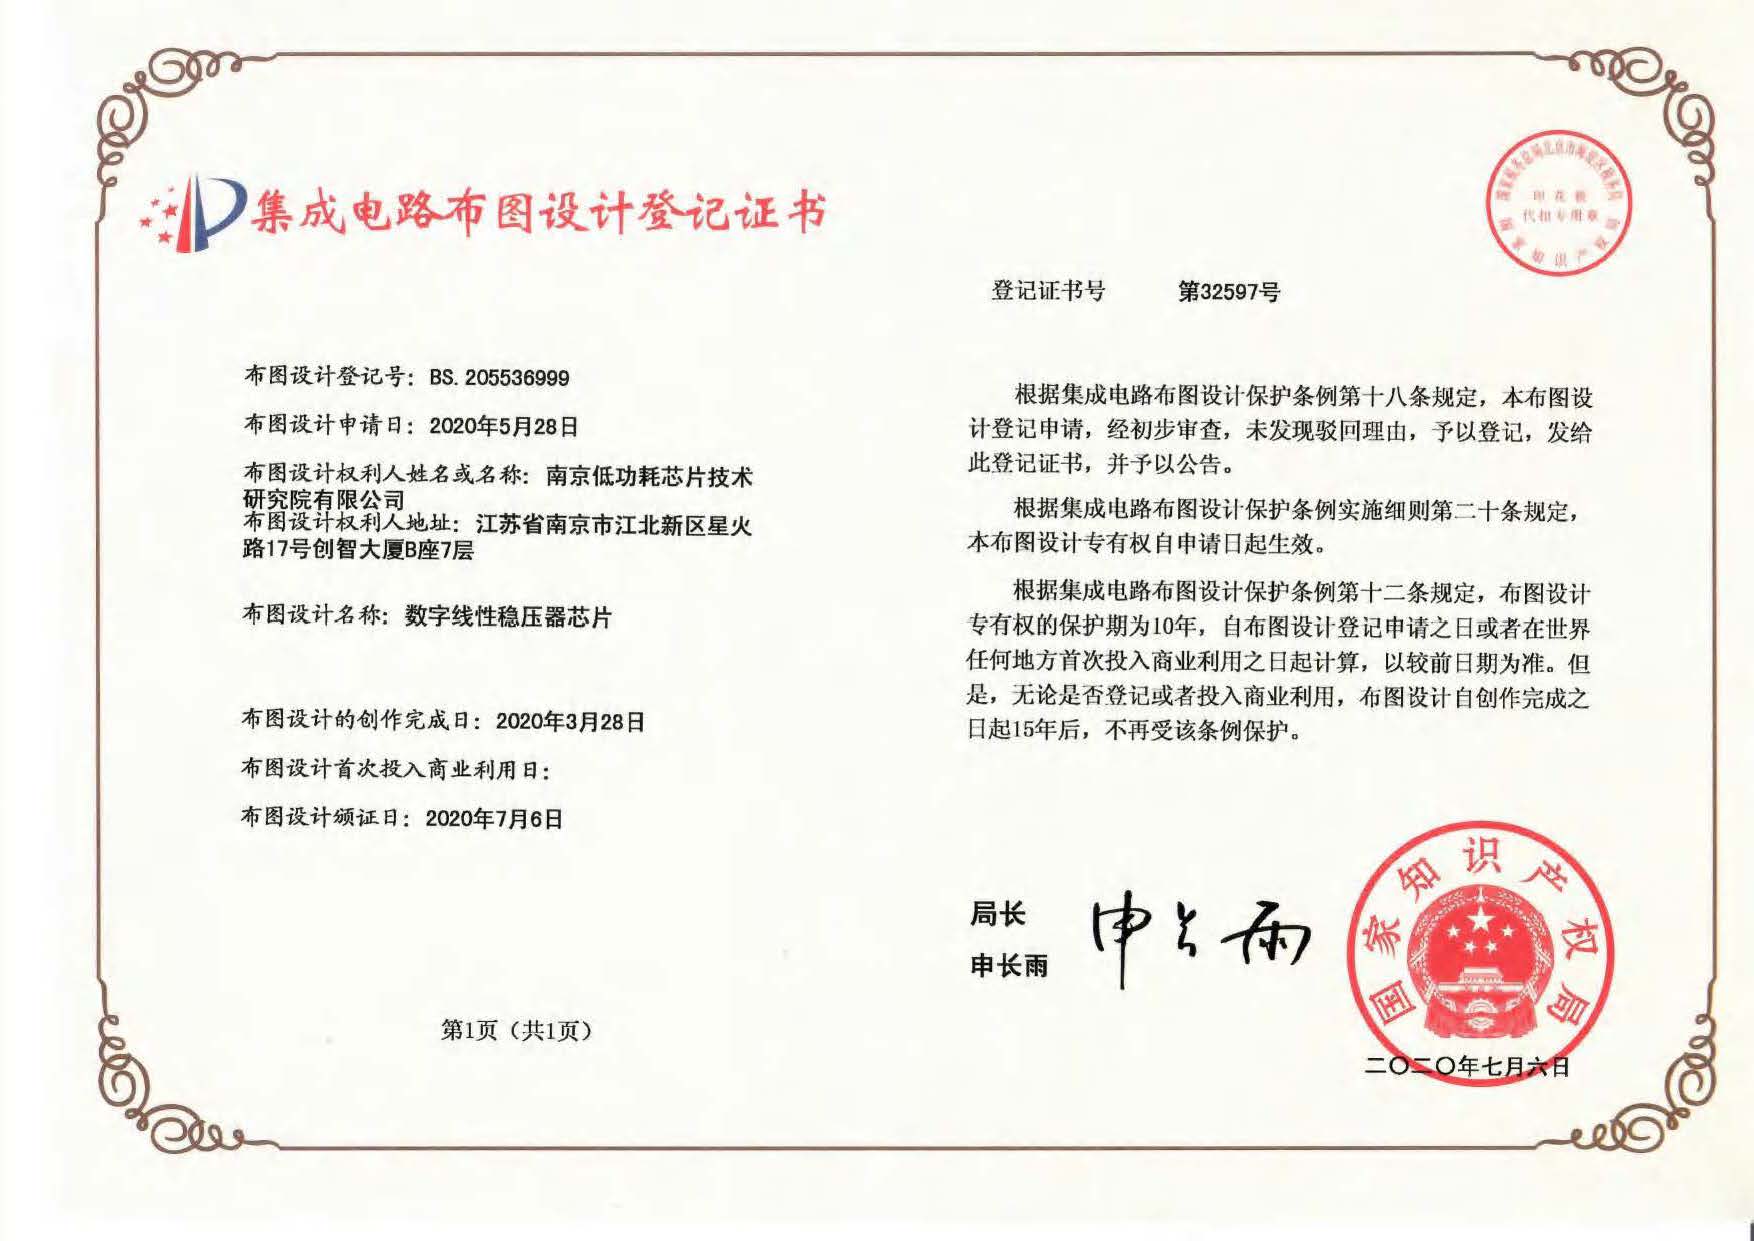 集成电路布图设计登记证书
布图设计登记号：BS.205536999
布图设计申请日：2020年5月28日
布图设计权利人姓名或名称：南京低功耗芯片技术
研究院有限公司
布图设计权利人地址：江苏省南京市江北新区星火
路17号创智大厦B座7层
布图设计名称：数字线性稳压器芯片
布图设计的创作完成日：2020年3月28日
布图设计首次投入商业利用日：
布图设计颁证日：2020年7月6日
第1页（共1页）
印花税
代扣专用章
登记证书号 第32597号
根据集成电路布图设计保护条例第十八条规定，本布图设
计登记申请，经初步审查，未发现驳回理由，予以登记，发给
此登记证书，并予以公告。
根据集成电路布图设计保护条例实施细则第二十条规定，
本布图设计专有权自申请日起生效。
根据集成电路布图设计保护条例第十二条规定，布图设计
专有权的保护期为10年，自布图设计登记申请之日或者在世界
任何地方首次投入商业利用之日起计算，以较前日期为准。但
是，无论是否登记或者投入商业利用，布图设计自创作完成之
日起15年后，不再受该条例保护。
局长
申长雨
申长雨
国家知识产权局
二〇二〇年七月六日